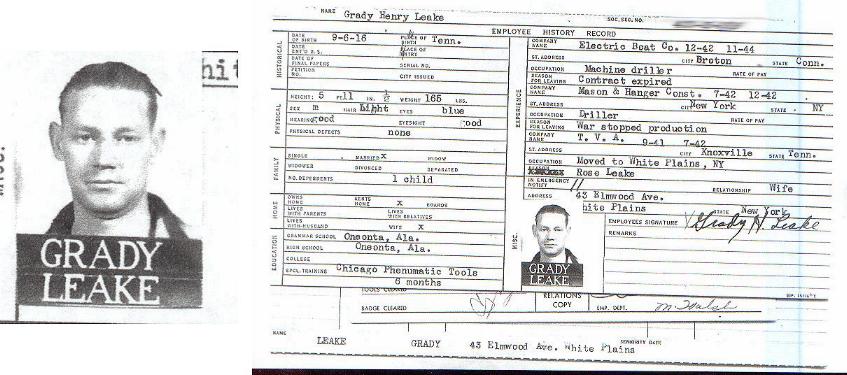 hit
MISC.
GRADY
LEAKE
NAME Grady Henry Leake SOC. SEC. NO.
EMPLOYEE HISTORY RECORD
HISTORICAL
DATE OF BIRTH 9-6-16 PLACE OF BIRTH Tenn.
DATE ENT'D U.S. PLACE OF ENTRY
DATE OF FINAL PAPERS SERIAL NO.
PETITION NO. CITY ISSUED
PHYSICAL
HEIGHT: 5 FT. 11 IN. WEIGHT 165 LBS.
SEX m HAIR Light EYES blue
HEARING good EYESIGHT good
PHYSICAL DEFECTS none
FAMILY
SINGLE MARRIED X WIDOW
WIDOWER DIVORCED SEPARATED
NO. DEPENDENTS 1 child
HOME
OWNS HOME RENTS HOME X BOARDS
LIVES WITH PARENTS LIVES WITH RELATIVES
LIVES WITH HUSBAND WIFE X
EDUCATION
GRAMMAR SCHOOL Oneonta, Ala.
HIGH SCHOOL Oneonta, Ala.
COLLEGE
SPCL. TRAINING Chicago Phenumatic Tools
6 months
EXPERIENCE
COMPANY NAME Electric Boat Co. 12-42 11-44
ST. ADDRESS CITY Groton STATE Conn.
OCCUPATION Machine driller RATE OF PAY
REASON FOR LEAVING Contract expired
COMPANY NAME Mason & Hanger Const. 7-42 12-42
ST. ADDRESS CITY New York STATE NY
OCCUPATION Driller RATE OF PAY
REASON FOR LEAVING War stopped production
COMPANY NAME T. V. A. 9-41 7-42
ST. ADDRESS CITY Knoxville STATE Tenn.
OCCUPATION Moved to White Plains, NY
Rose Leake
IN EMERGENCY NOTIFY RELATIONSHIP Wife
ADDRESS 43 Elmwood Ave.
hite Plains STATE New York
MISC.
GRADY
LEAKE
EMPLOYEES SIGNATURE Grady H. Leake
REMARKS
TOOLS CLEARED RELATIONS COPY
BADGE CLEARED EMP. DEPT.
NAME SENIORITY DATE
LEAKE GRADY 43 Elmwood Ave. White Plains